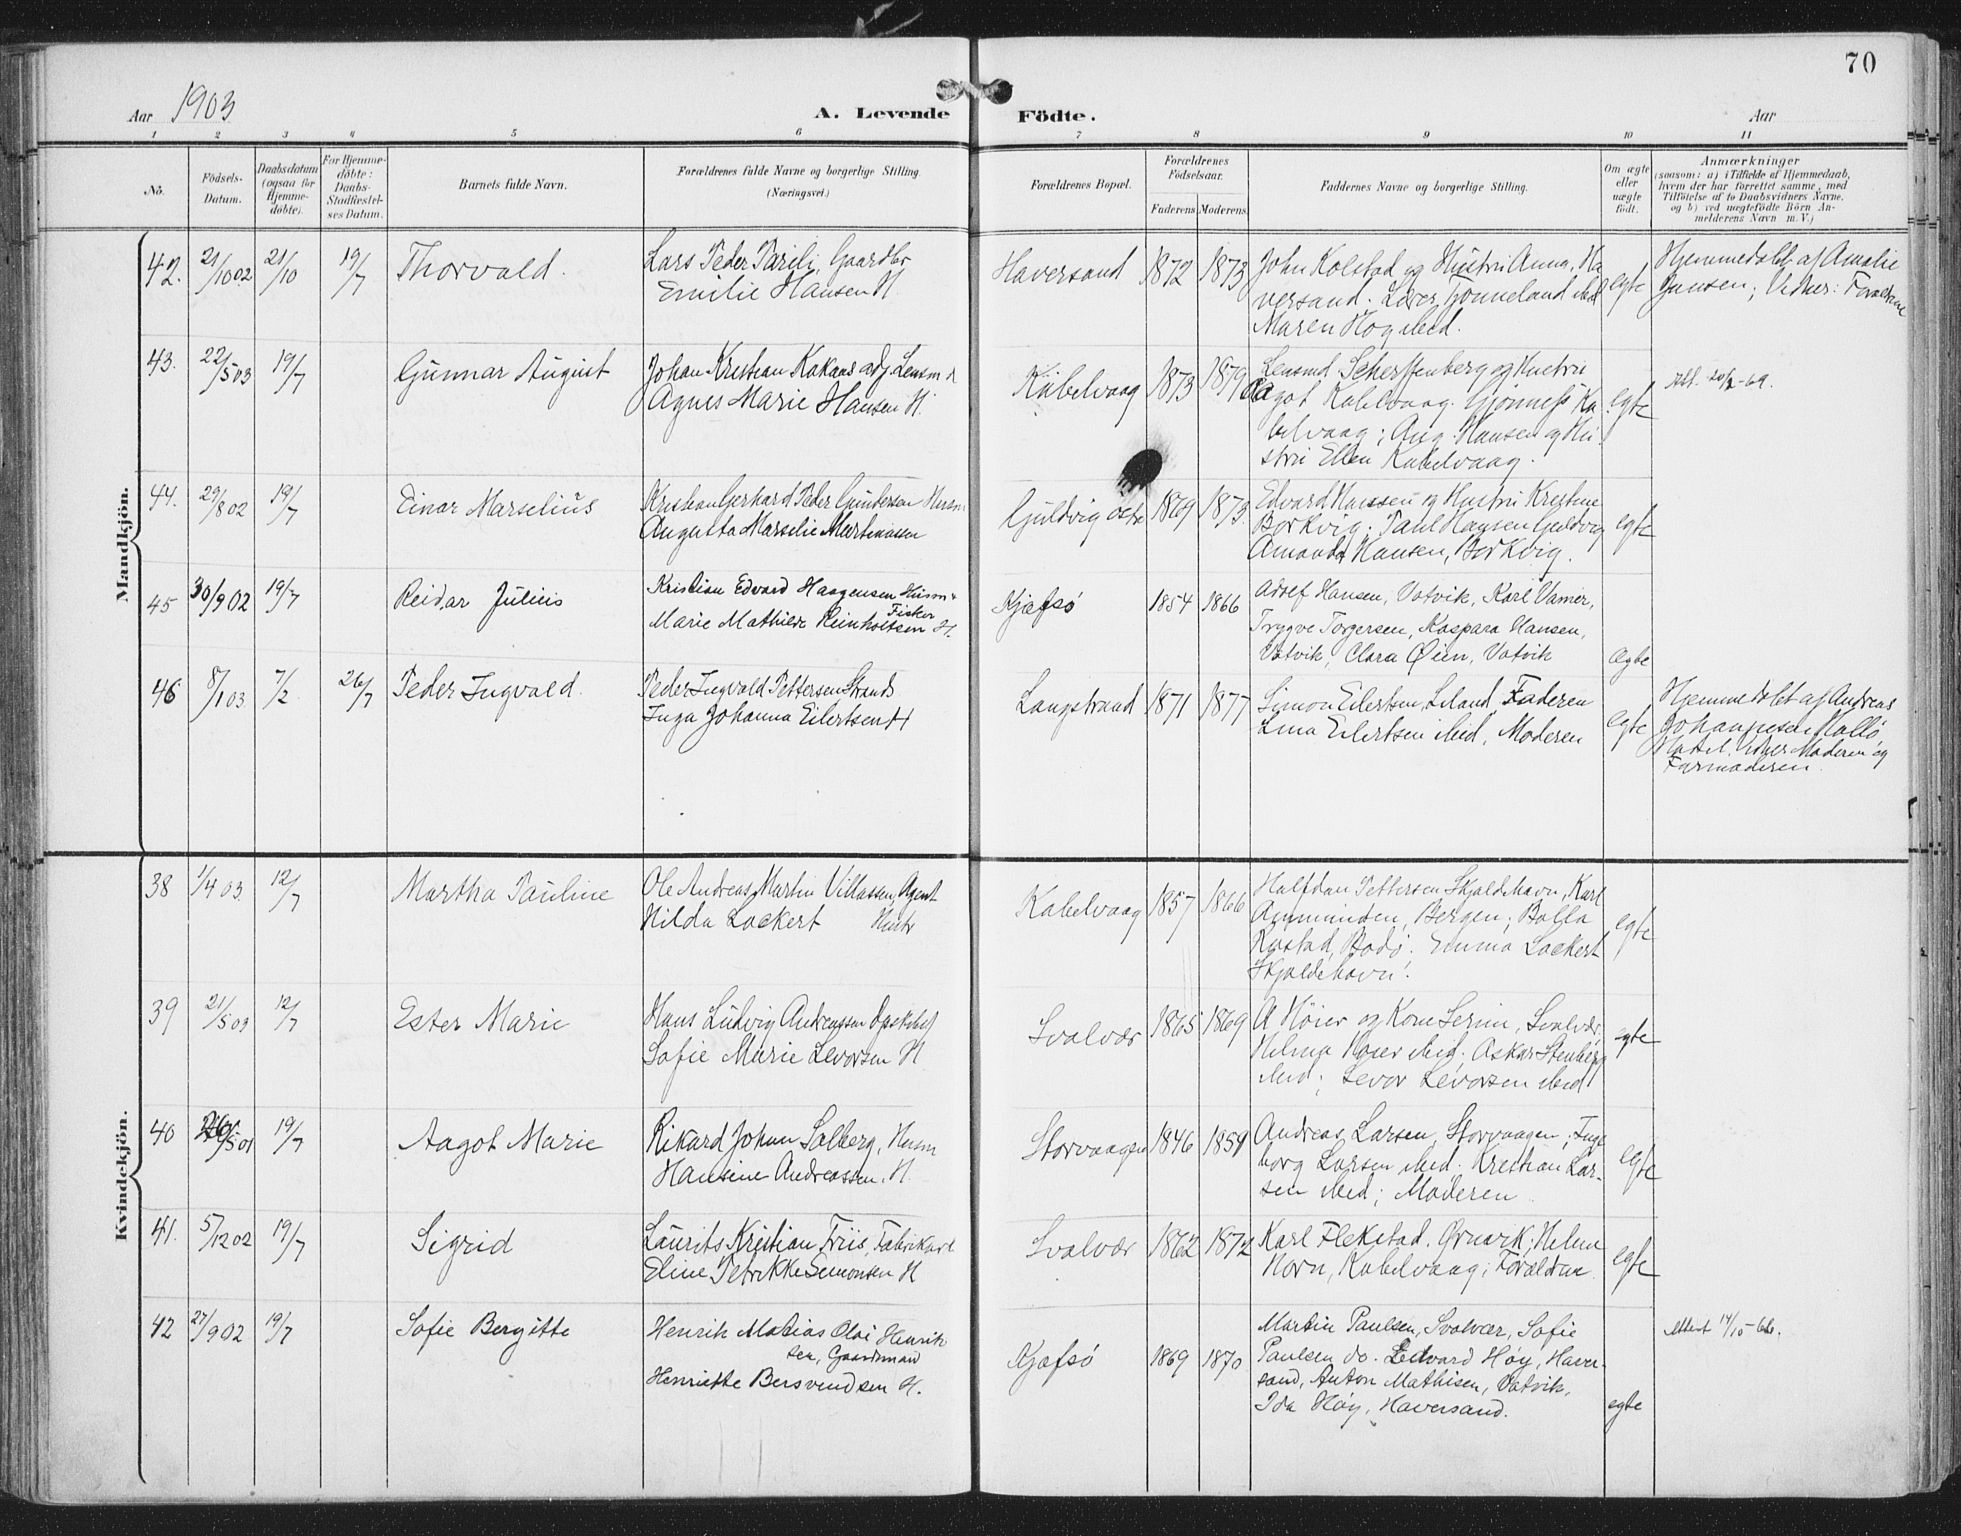 70
Aar 1903
A. Levende
Födte.
Aar
1 2 3 4 5 6 7 8 9 10 11
No.
Födsels-
Datum.
Daabsdatum
(ogsaa for
Hjemme-
döbte).
For Hjemme-
döbte:
Daabs-
Stadfæstel-
ses Datum.
Barnets fulde Navn.
Forældrenes fulde Navne og borgerlige Stilling.
(Næringsvei.)
Forældrenes Bopæl.
Forældrenes
Födselsaar.
Faderens Moderens
Faddernes Navne og borgerlige Stilling.
Om ægte
eller
uægte
født.
Anmærkninger
(saasom: a) i Tilfælde af Hjemmedaab,
hvem der har forrettet samme, med
Tilföielse af to Daabsvidners Navne,
og b) ved uægtefödte Börn An-
melderens Navn m. V.)
Mandkjön.
42. 21/10 02 21/10 19/7 Thorvald.
Lars Peder Parili, Gaardbr
Emilie Hansen H.
Haversand 1872 1873
John Kolstad og Hustru Anna, Ha
versand. Lover Tjonneland ibid
Maren Hog ibid.
egte
Hjemmedøbt af Amalie
Jensen; Vidner: Forældrene
43. 22/5 03 19/7 Gunnar August
Johan Kristian Kakaas adj. Lensm
Agnes Marie Hansen H.
Kabelvaag 1873 1879
Lensmd Scherffenberg og Hustru
Aagot Kabelvaag. Gjønness Ka
belvaag; Aug. Hansen og Hu
stru Ellen Kabelvaag.
egte
Att. 20/2-69.
44. 29/8 02 19/7 Einar Marselius
Kristian Gerhard Peder Gundersen Husm
Augusta Marselie Martinussen
Guldvig østre 1869 1873
Edvard Hanssen og Hustru Kristine
Borkvig. Paul Hansen Guldvig
Amanda Hansen, Borkvig.
egte
45 30/9 02 19/7 Reidar Julius
Kristian Edvard Haagensen Husm &
Fisker
Marie Mathilde Reinholtsen H.
Kjæfsö 1854 1866
Adolf Hansen, Vatvik, Karl Vamer,
Trygve Torgersen, Kaspara Hansen,
Vatvik, Clara Øien, Vatvik
ægte
46 8/1 03 7/2 26/7 Peder Ingvald.
Peder Ingvald Pettersen Strands
Inga Johanna Eilertsen H
Langstrand 1871 1877
Simon Eilertsen, Leland, Faderen
Lina Eilertsen ibid, Moderen
egte
Hjemmedøbt af Andreas
Johannesen Mollö
Vidner Moderen og
Farmoderen.
Kvindekjön.
38 1/4 03 12/7 Martha Pauline
Ole Andreas Martin Villassen, Agent
Hilda Lockert Hustr
Kabelvaag 1857 1866
Halfdan Pettersen Skjoldehavn, Karl
Amminden, Bergen; Bolla
Rystad, Bodö. Emma Lockert
Skjoldehavn.
egte
39 21/5 03 12/7 Ester Marie
Hans Ludvig Andreassen
Sofie Marie Levorsen H
Svolvær 1865 1869
A Höier og Kone Serine, Svolvær,
Helma Höier ibid. Oskar Stenberg
ibid; Levor Levorsen ibid
egte
40 26/5 01 19/7 Aagot Marie
Rikard Johan Solberg, Husm
Hansine Andreassen. H.
Storvaagen 1846 1859
Andreas Larsen, Storvaagen; Inge
borg Larsen ibid. Kristian Lar-
sen ibid; Moderen
egte
41. 5/12 02 19/7 Sigrid
Laurits Kristian Friis, Fabrikarb
Eline Petrikke Simonsen H
Svolvær 1862 1872
Karl Flekstad. Ørnevik; Helma
Horn, Kabelvaag; Forældrene
egte
42 27/9 02 19/7 Sofie Bergitte
Henrik Matias Olai Henrik
sen, Gaardmand
Henriette Bersvendsen H.
Kjæfsö 1869 1870
Martin Paulsen, Svolvær, Sofie
Paulsen do. Edvard Høy, Haver-
sand, Anton Mathisen, Vatvik,
Ida Høy, Haversand.
egte
Attest 14/10-66.